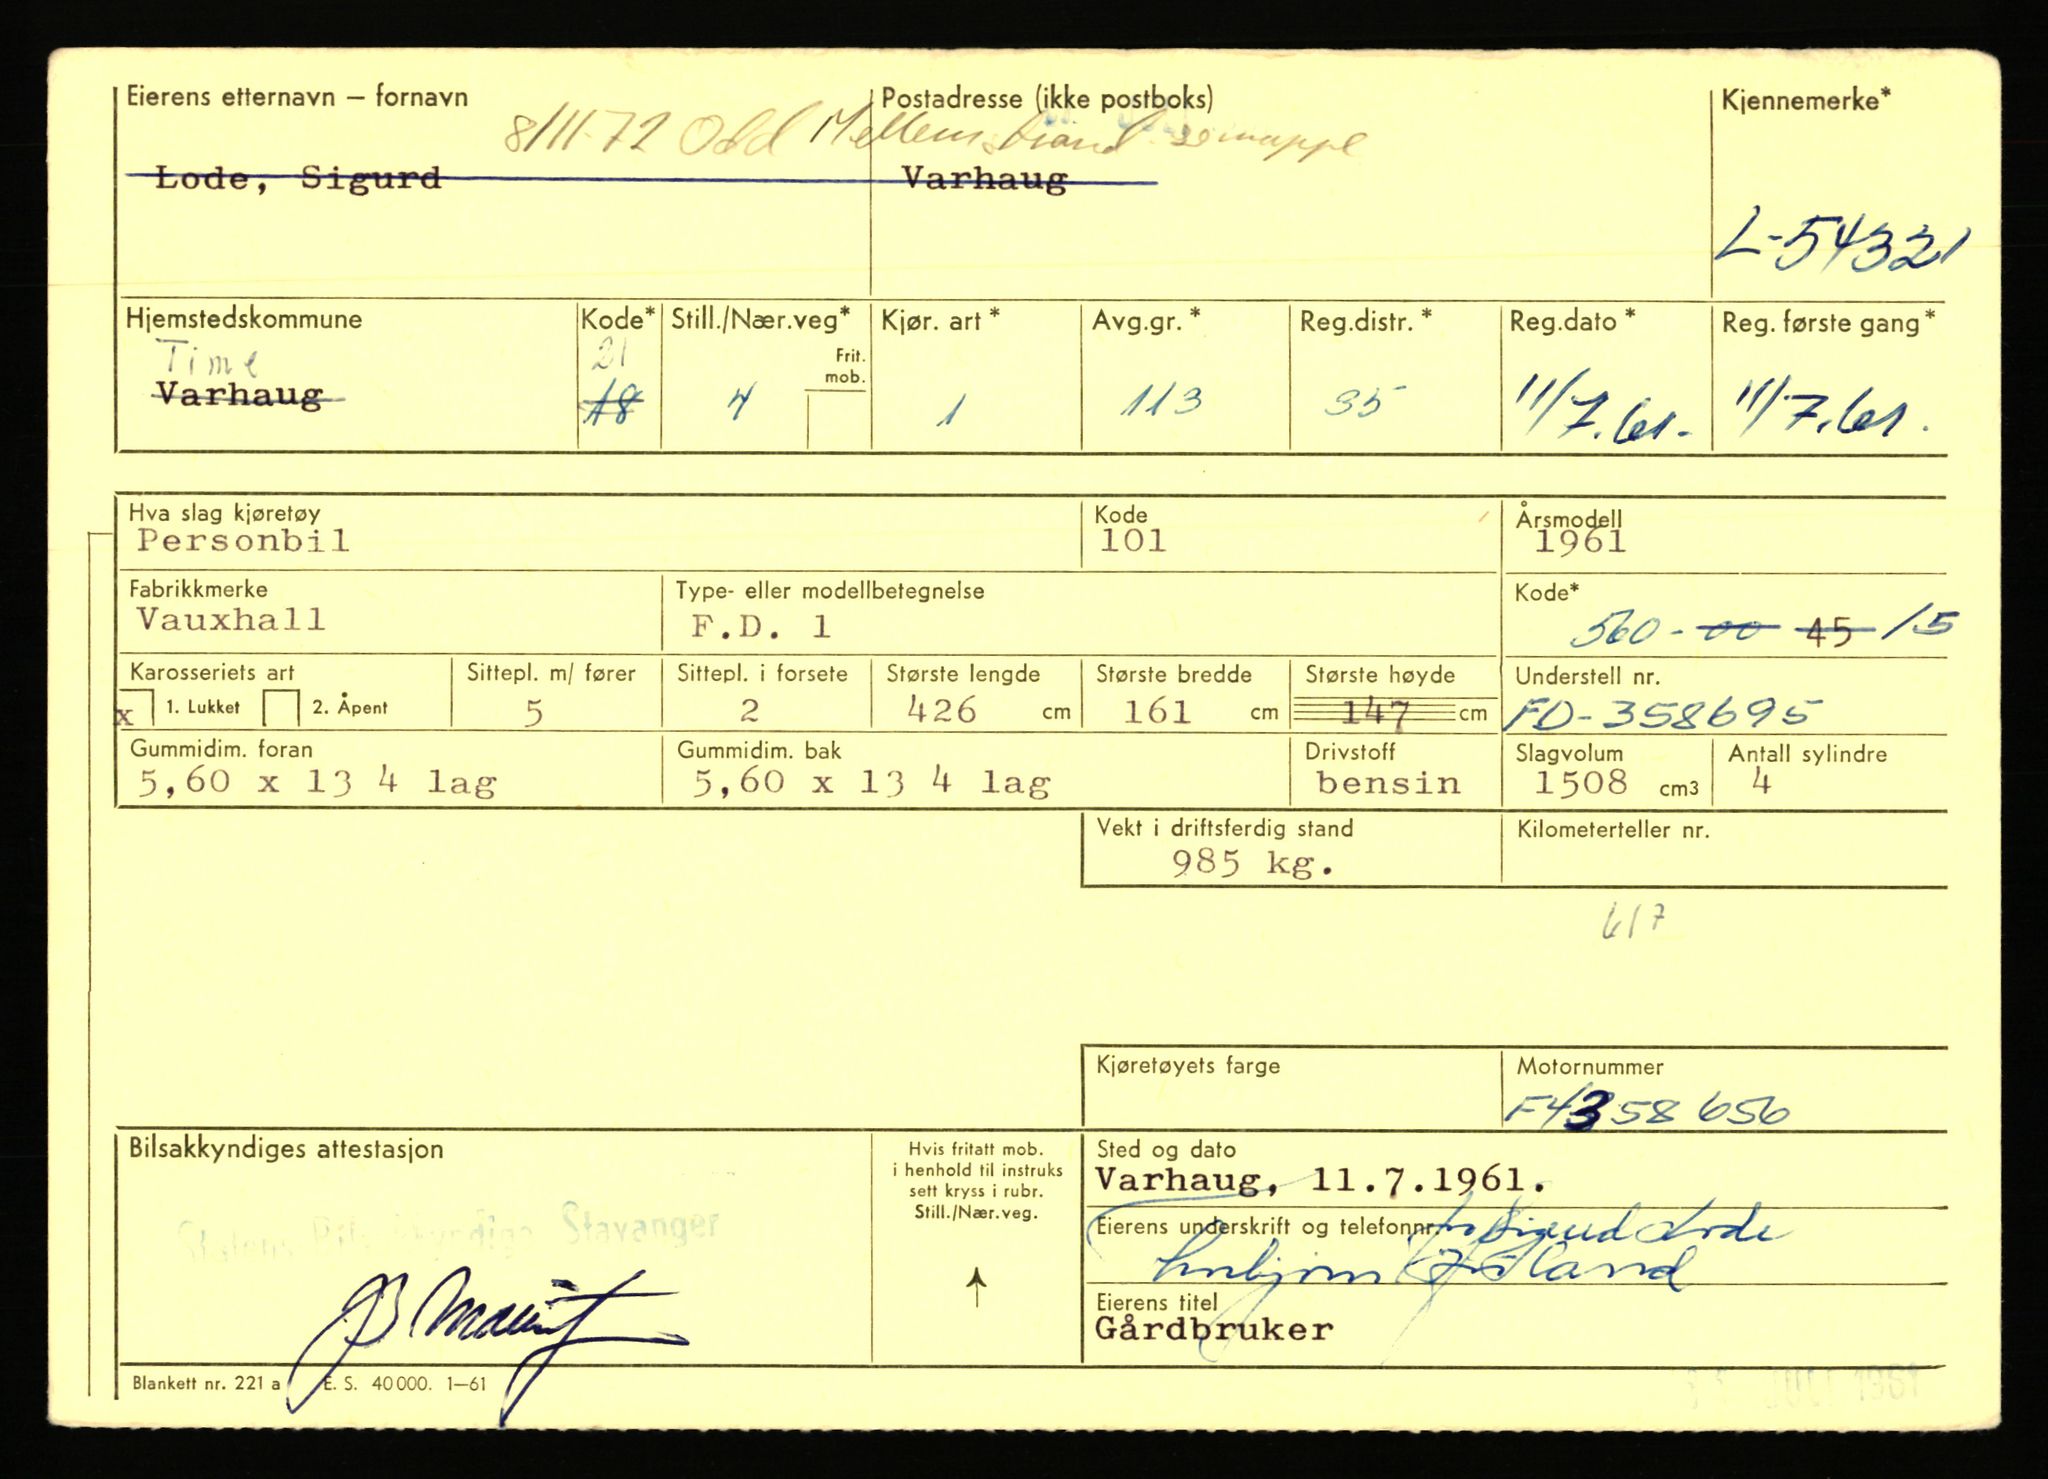 Eierens etternavn – fornavn
Postadresse (ikke postboks)
Kjennemerke*
8/11-72 Odd Mellemstrand se mappe
Lode, Sigurd
Varhaug
L-54321
Hjemstedskommune
Kode*
Still./Nær.veg*
Kjør. art *
Avg.gr. *
Reg.distr. *
Reg.dato *
Reg. første gang *
Time
21
Frit. mob.
Varhaug
18
4
1
113
35
11/7.61.
11/7.61.
Hva slag kjøretøy
Kode
Årsmodell
Personbil
101
1961
Fabrikkmerke
Type- eller modellbetegnelse
Kode*
Vauxhall
F.D. 1
560 - 00 45 15
Karosseriets art
Sittepl. m/ fører
Sittepl. i forsete
Største lengde
Største bredde
Største høyde
Understell nr.
x 1. Lukket
2. Åpent
5
2
426 cm
161 cm
147 cm
FD-358695
Gummidim. foran
Gummidim. bak
Drivstoff
Slagvolum
Antall sylindre
5,60 x 13 4 lag
5,60 x 13 4 lag
bensin
1508 cm3
4
Vekt i driftsferdig stand
Kilometerteller nr.
985 kg.
617
Kjøretøyets farge
Motornummer
F4358656
Bilsakkyndiges attestasjon
Hvis fritatt mob.
i henhold til instruks
sett kryss i rubr.
Still./Nær.veg.
Sted og dato
Varhaug, 11.7.1961.
Statens Bilsakkyndige Stavanger
Eierens underskrift og telefonnr.
Sigurd Lode
Eierens titel
Gårdbruker
Blankett nr. 221 a
E. S. 40 000. 1–61
JULI 1961